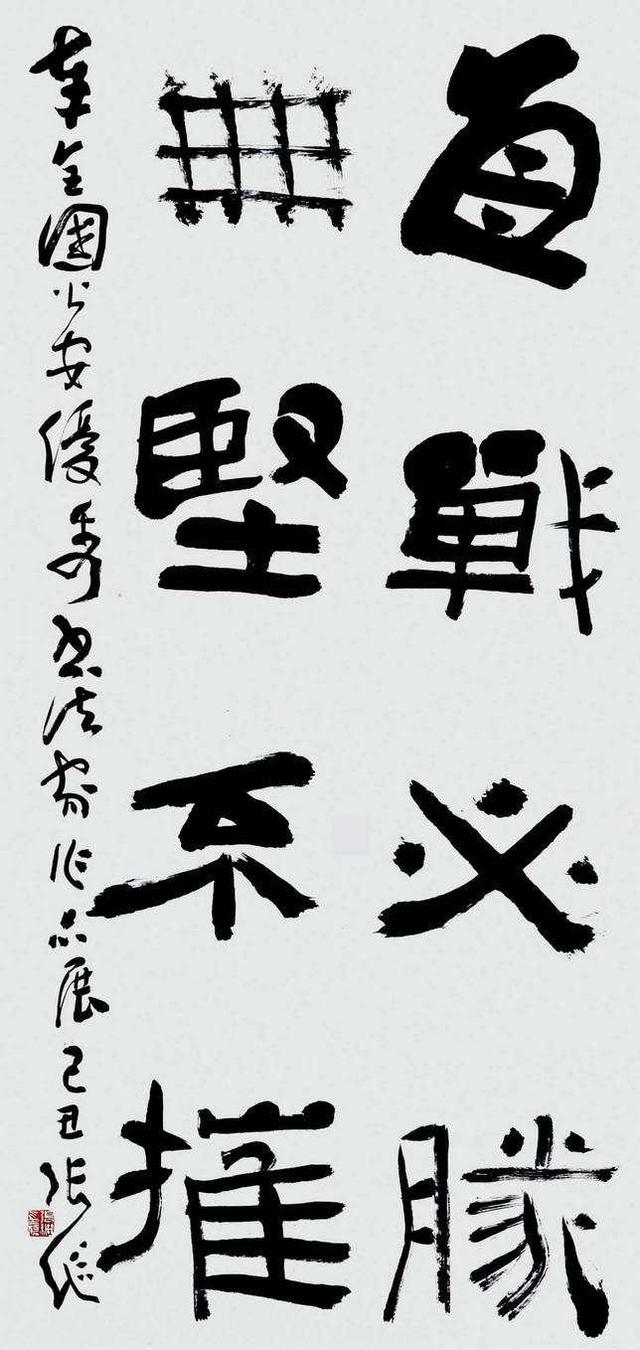 百戰必勝
無堅不摧
奉全國公安優秀書法家作品展己丑張繼